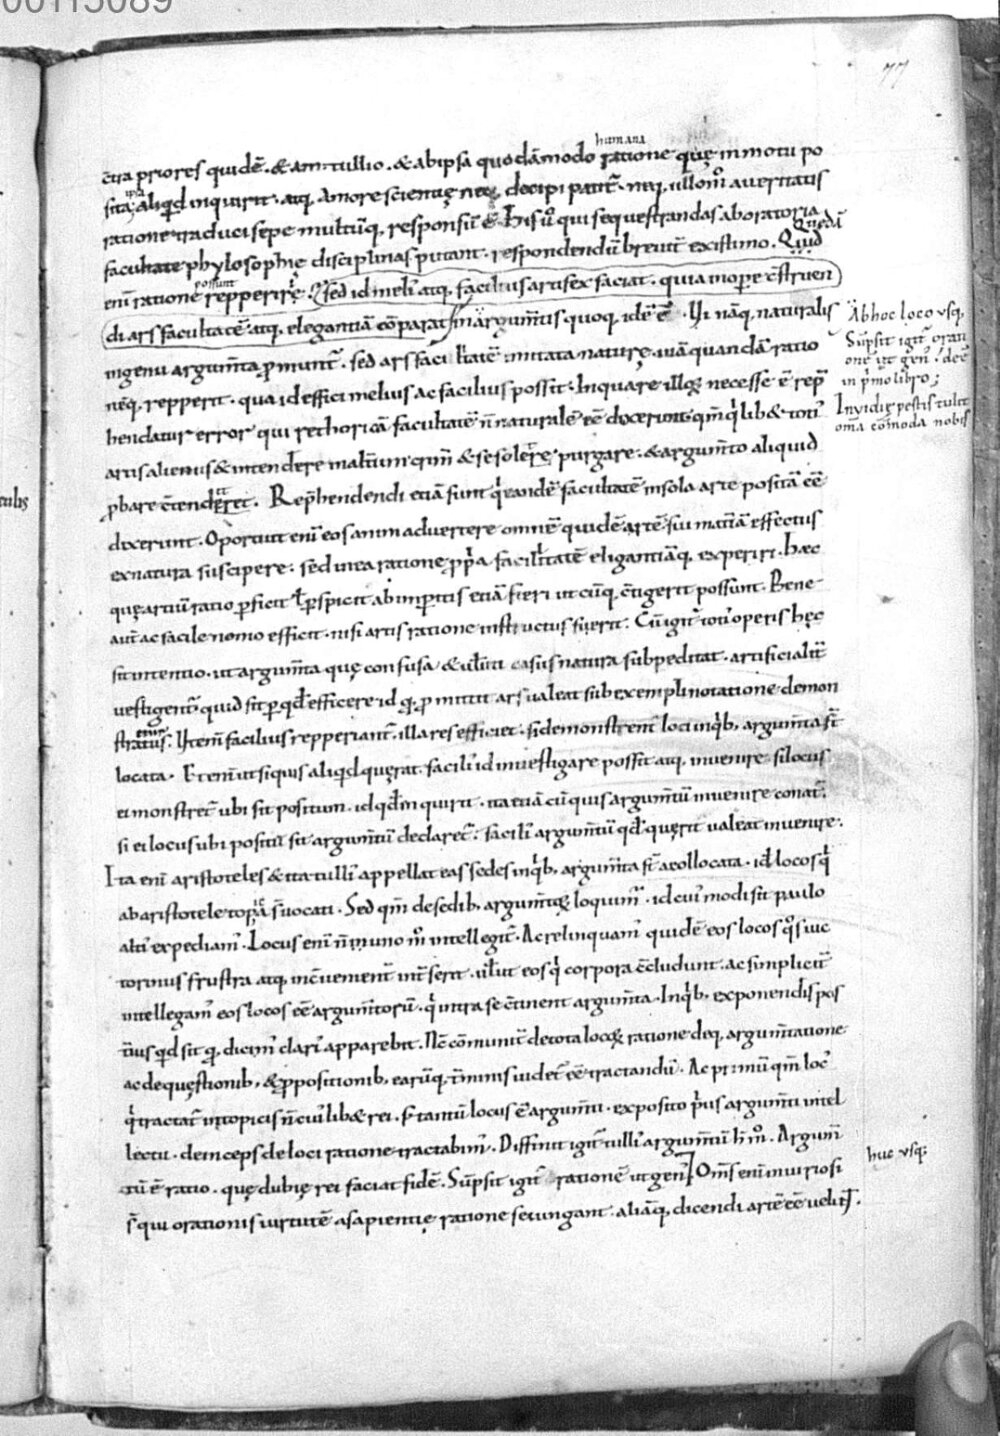 00115089
77
humana
c̄tra priores quidē · & a m · tullio · & ab ipsa quodāmodo ratione quę in motu po
sita aliqd inquirit · atq; amore scientię neq; decipi patit̄ · neq; ullom̊ a veritatis
ratione traduci sepe multūq; responsū ē · His ů qui sequestrandas ab oratoria
quedā
facultate phylosophię disciplinas putant · respondendū breuit̄ existimo · Quid
possunt
eni ratione repperire · sed id meli' atq; facilius artifex faciat · quia in opere c̄struen
di ars facultatē atq; elegantiā cōparat in argum̄tis quoq; idē ē · Hi nāq; naturalis
ingenii argum̄ta promunt̄ · sed ars facilitatē imitata naturę uiā quandā ratio
nēq; repperit · qua id effici melius ac facilius possit · In quare illoꝝ necesse ē rep̄
hendatur error qui rethoricā facultatē n̄ naturalē eē dixerunt · qm̄ q'lib& toti'
artis alienus & intendere malum crim̄ & se solere purgare · & argum̄to aliquid
probare c̄tenderet · Rep̄hendendi etiā sunt q' eandē facultatē in sola arte positā eē
dixerunt · Oportuit eni eos animaduertere omnē quidē artē sui mat̄iā effectus
ex natura suscipere · sed in ea ratione pp̄a facilitatē eligantiāq; experiri · Haec
quę artiū ratio pficit l' pspicit ab impitis etiā fieri ut cūq; c̄tigerit possunt · Bene
aut̄ ac facile nemo efficit · nisi artis ratione instructus fuerit · Cū igit̄ toti' operis hęc
sit intentio · ut argum̄ta quę confusa & uluti casus natura subpeditat · artificialit̄
uestigent̄ quid sit p qd efficere id q; pmittit ars ualeat sub exempli notatione demon
stratus · Item facilius repperiant̄ · illa res efficiet · si demonstrent̄ loci in q'b; argum̄ta st̄
locata · Eteni ut si quis aliqd quęrat · facili' id inuestigare possit atq; inuenire · si locus
ei monstret̄ ubi sit positum · id qd inquirit · ita etiā cū quis argum̄tū inuenire conat̄ ·
si ei locus ubi positū sit argum̄tū declaret̄ · facili' argum̄tū qd quęrit ualeat inuenire ·
Ita eni aristoteles & ita tulli' appellat eas sedes in q'b; argum̄ta st̄ collocata · id l' locos q'
ab aristotele topica s̄ uocati · Sed qm̄ de sedib; argum̄toꝝ loquim̄ · id cui' modi sit paulo
alti' expediam' · Locus eni n̄ in uno m̊ intellegit̄ · Ac relinquam' quidē eos locos q̊s iuc
torinus frustra atq; incuenient̄ int̄serit · ulut eos q' corpora c̄cludunt · ac simplicit̄
intellegam' eos locos eē argum̄torū · q' intra se c̄tinent argum̄ta · In q'b; exponendis pos
t̄ius qd sit qd dicim' clari' apparebit · Nc̄ cōmunit̄ de tota locoꝝ ratione deq; argum̄tatione
ac de quęstionib; & ppositionib; earūq; t̄minis uidet̄ eē tractandū · Ac primū qm̄ loc'
q' tractat̄ in topicis n̄ cui'lib& rei · s; tantū locus ē argum̄ti · exposito p'us argum̄ti intel
lectu · deinceps de loci ratione tractabim' · Diffinit igit̄ tulli' argum̄tū h̄ m̊ · Argum̄
tū ē ratio · quę dubię rei faciat fidē · Sūpsit igit̄ rationē ut gen' Om̄s eni inuriosi
s̄ qui orationis uirtutē a sapientię ratione seiungant · aliāq; dicendi artē eē uelint ·
Ab hoc loco usq;
Sūpsit igit̄ orati
one ut gen' · deē
in p'mo libro ;
Inuidię pestis tulit
om̄a cōmoda nobis
huc usq;